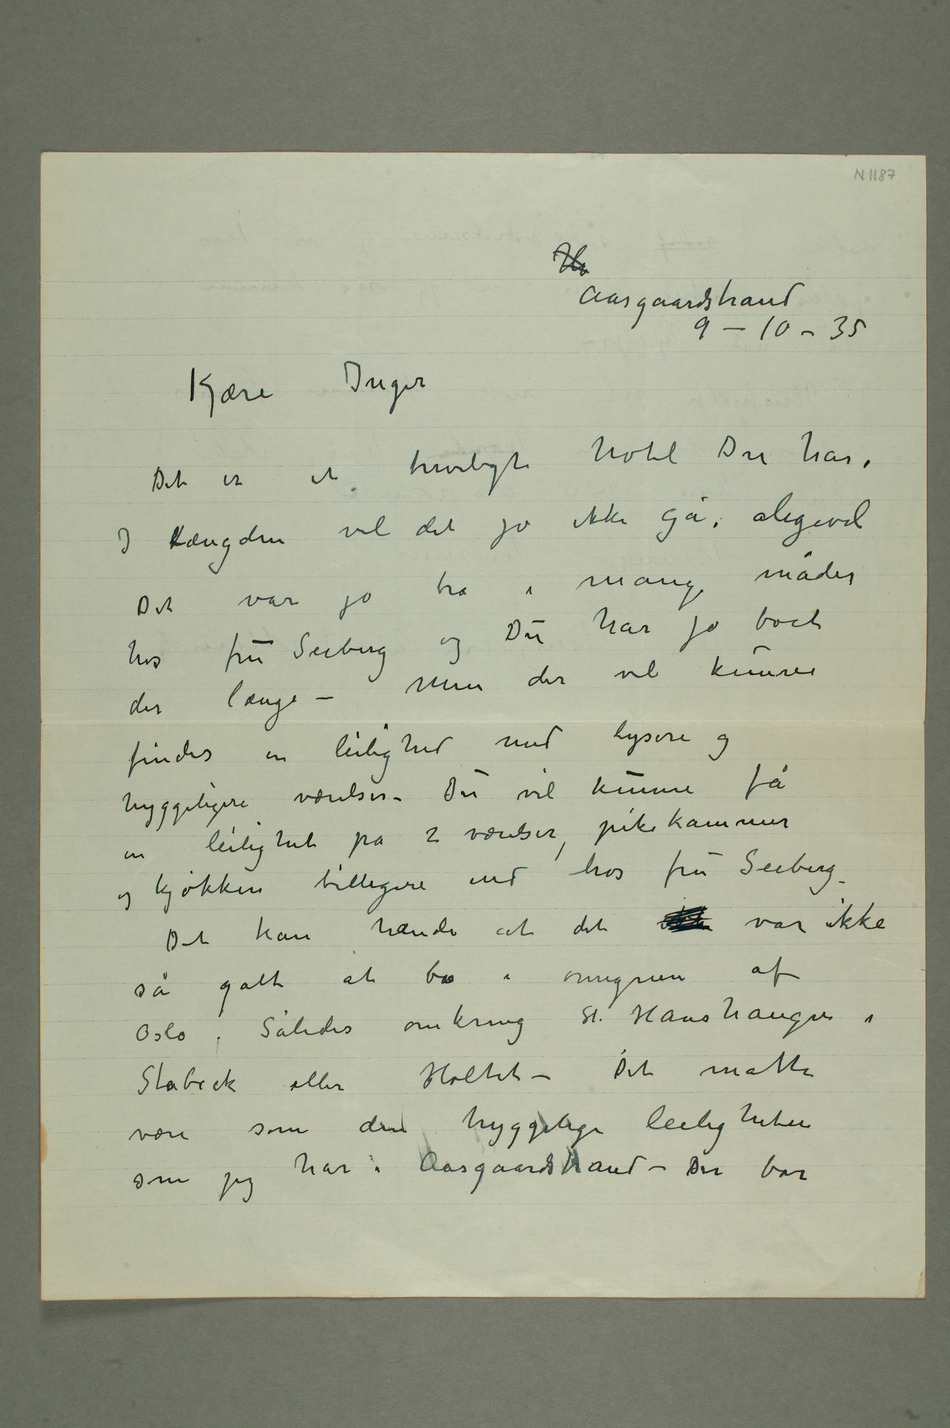 N 1187
Aasgaardstrand
9 – 10 – 35
Kjære Inger
Det er et truveligt hotel Du har,
I længden vil det jo ikke gå, aligevel
Det var jo bra i mange måder
hos fru Seeberg og Du har jo boet
der længe – Men der vil kunne
findes en leilighed med lysere og
hyggeligere værelser – Du vil kunne få
en leilighet på 2 værelser, pikekammer
og kjøkken billigere end hos fru Seeberg.
Det kan hænde at det var ikke
så galt at bo i omegnen af
Oslo. Således omkring St. Hanshaugen i
Stabæk eller Holtet – Det måtte
være som den hyggelige leiligheten
som jeg har i Aasgaardstrand – Der bor